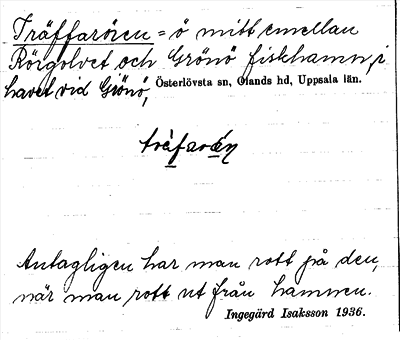 Träffarören = ö mitt emellan
Rörgolvet och Grönö fiskhamn, i
havet vid Grönö, Österlövsta sn, Olands hd, Uppsala län.
Antagligen har man rott på den,
när man rott ut från hamnen.
Ingegärd Isaksson 1936.